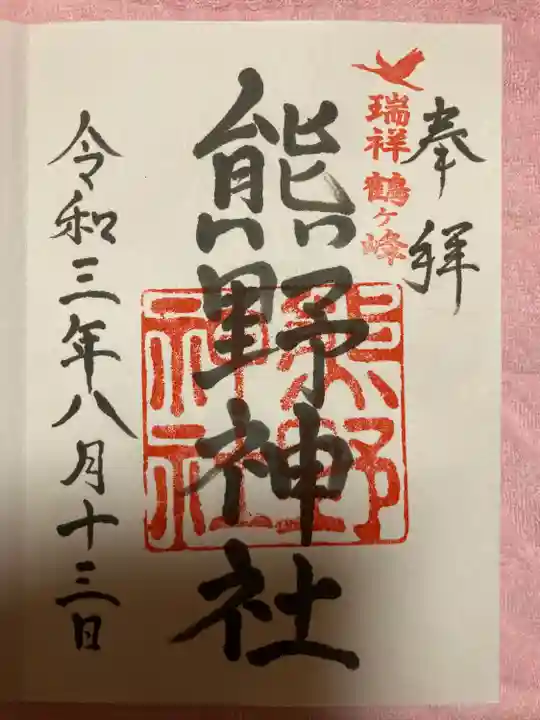 奉拝
瑞祥鶴ヶ峰
熊野神社
熊野神社
令和三年八月十三日